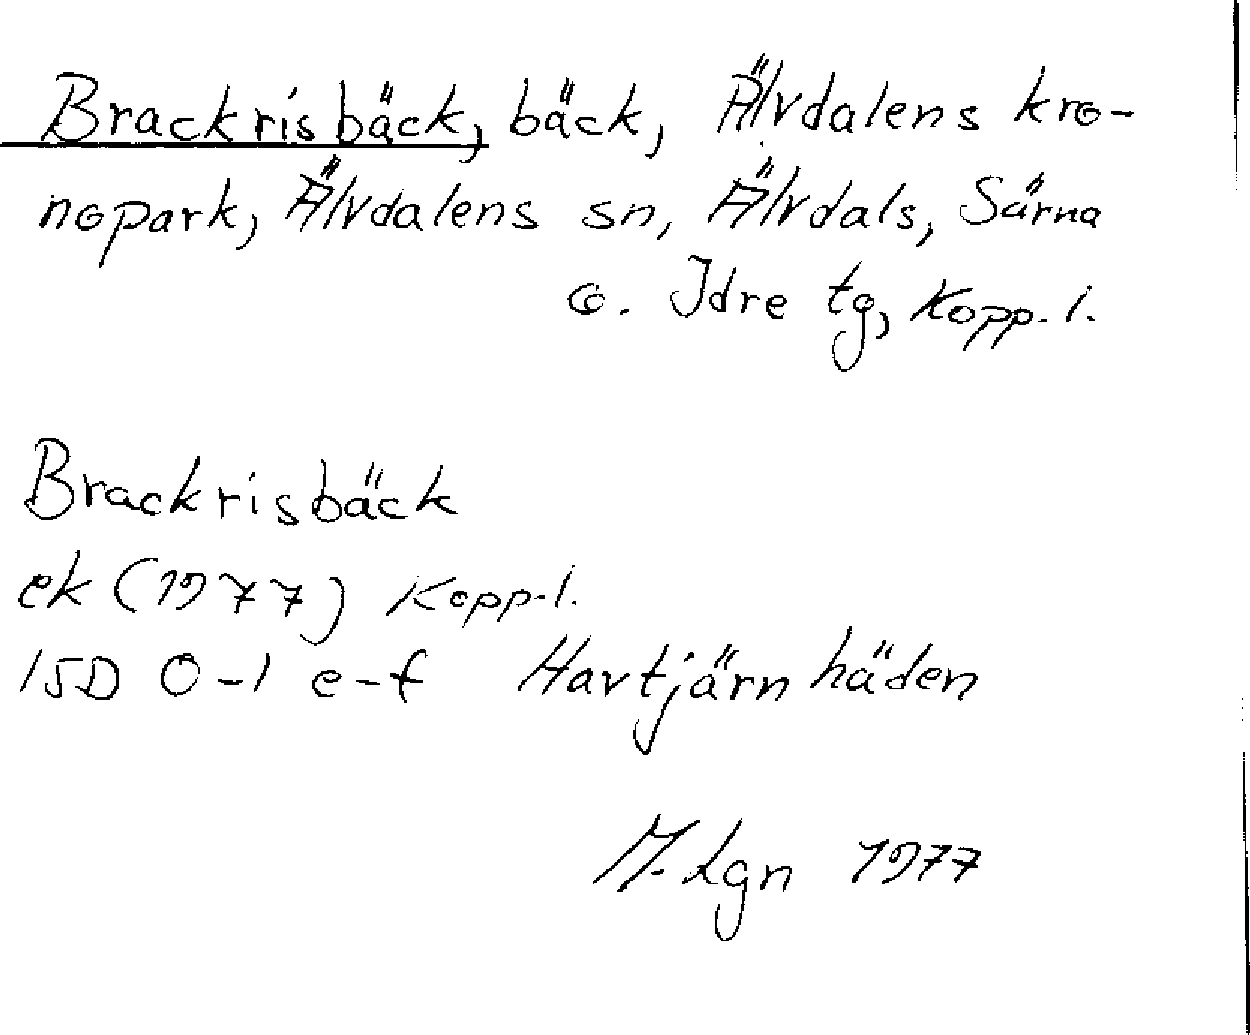 Brackrisbäck, bäck, Älvdalens kro-
nopark, Älvdalens sn, Älvdals, Särna
o. Idre tg, Kopp. l.
Brackrisbäck
ek (1977) Kopp. l.
15D 0-1 e-f Havtjärnhäden
M. Lgn 1977